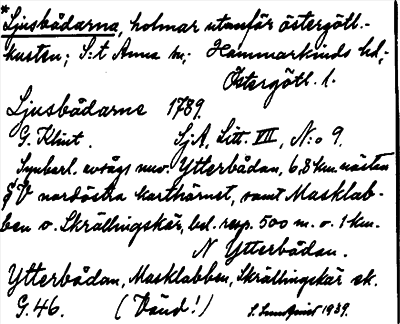 *Ljusbådarna, holmar utanför östergötl.-
kusten; S:t Anna sn; Hammarkinds hd,
Östergötl. l.
Ljusbådarne 1789.
G. Klint. SjA, Litt. VII, N:o 9.
Synbarl. avsågs nuv. Ytterbådan, 6,8 km. nästan
V nordöstra karthörnet, samt Masklab-
ben o. Skrållingskär, bel. resp. 500 m. o. 1 km.
N Ytterbådan.
Ytterbådan, Masklabben, Skrållingskär ek.
G. 46. (Vänd!) 1939.